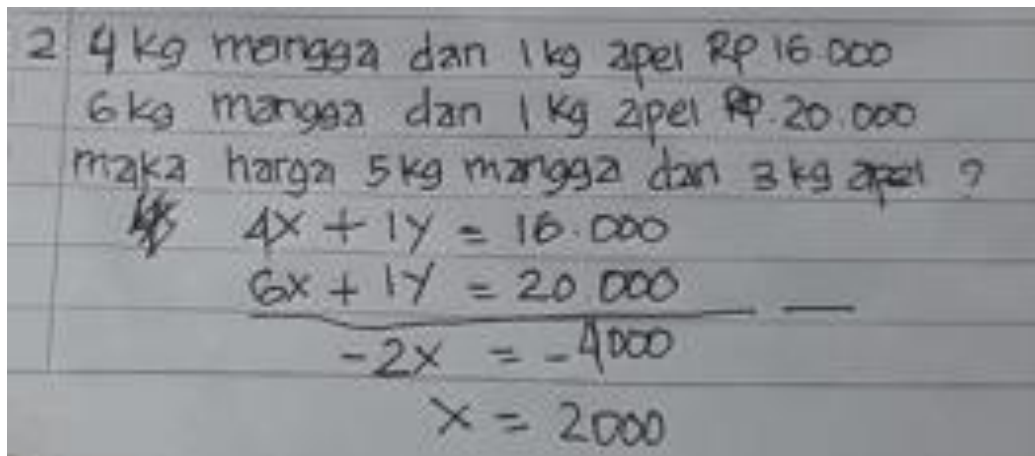 2 4 kg mangga dan 1 kg apel Rp 16.000
6 kg mangga dan 1 kg apel Rp. 20.000
maka harga 5 kg mangga dan 3 kg apel ?
4x + 1y = 16.000
6x + 1y = 20.000 —
-2x = -4000
x = 2000